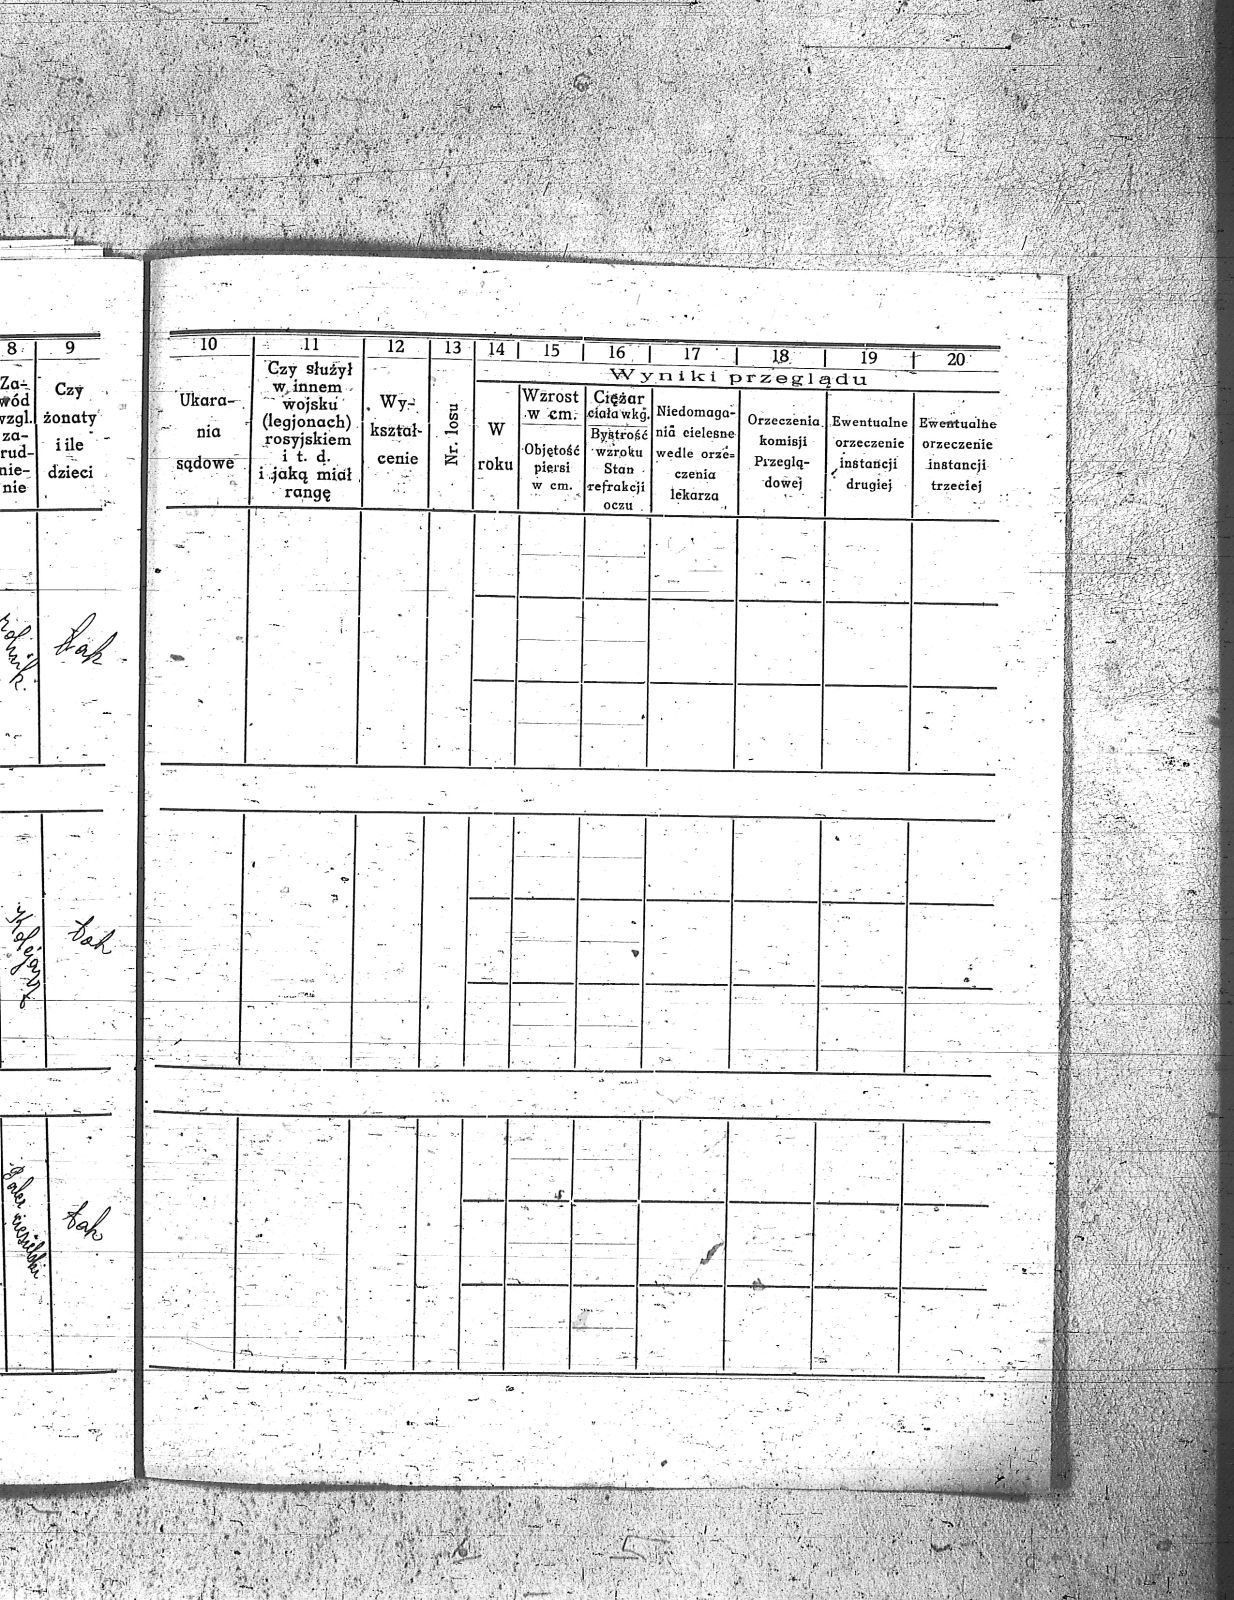 8
9
Za-
wód
wzgl.
za-
rud-
nie-
nie
Czy
żonaty
i ile
dzieci
rolnik
tak
Kolejarz
tak
tak
10
11
12
13
14
15
16
17
18
19
20
Wyniki przeglądu
Ukara-
nia
sądowe
Czy służył
w innem
wojsku
(legjonach)
rosyjskiem
i t. d.
i jaką miał
rangę
Wy-
kształ-
cenie
Nr. losu
W
roku
Wzrost
w cm.
Objętość
piersi
w cm.
Ciężar
ciała w kg.
Bystrość
wzroku
Stan
refrakcji
oczu
Niedomaga-
nia cielesne
wedle orze-
czenia
lekarza
Orzeczenia
komisji
Przeglą-
dowej
Ewentualne
orzeczenie
instancji
drugiej
Ewentualne
orzeczenie
instancji
trzeciej